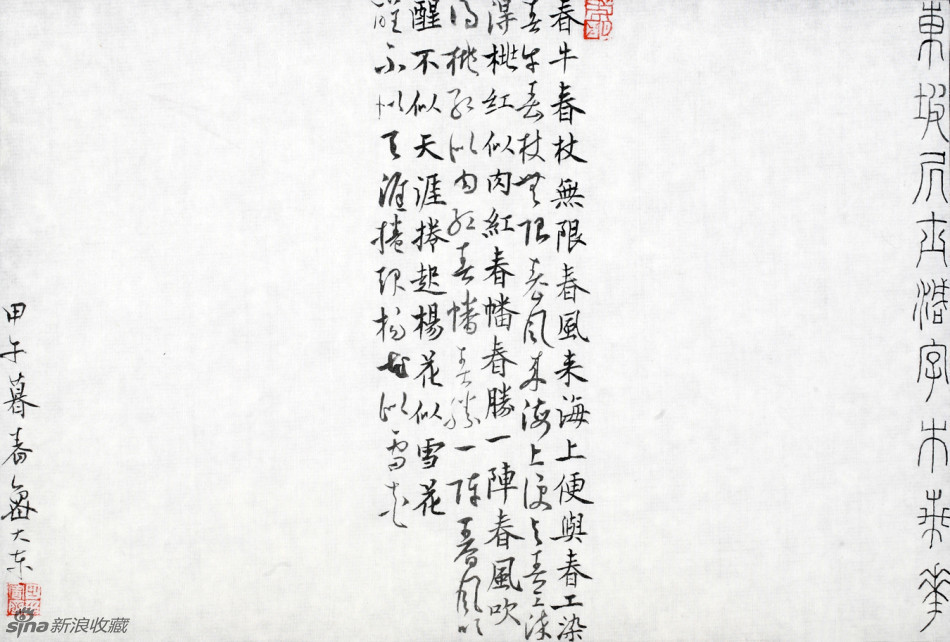 東坡居士減字木蘭華
春牛春杖無限春風来海上便與春工染
春牛春杖無限春風来海上便与春工染
得桃紅似肉紅春幡春勝一陣春風吹
得桃紅似肉紅春幡春勝一陣春風吹
醒不似天涯捲起楊花似雪花
醒不似天涯捲起楊花似雪花
甲午暮春魯大東
sina新浪收藏